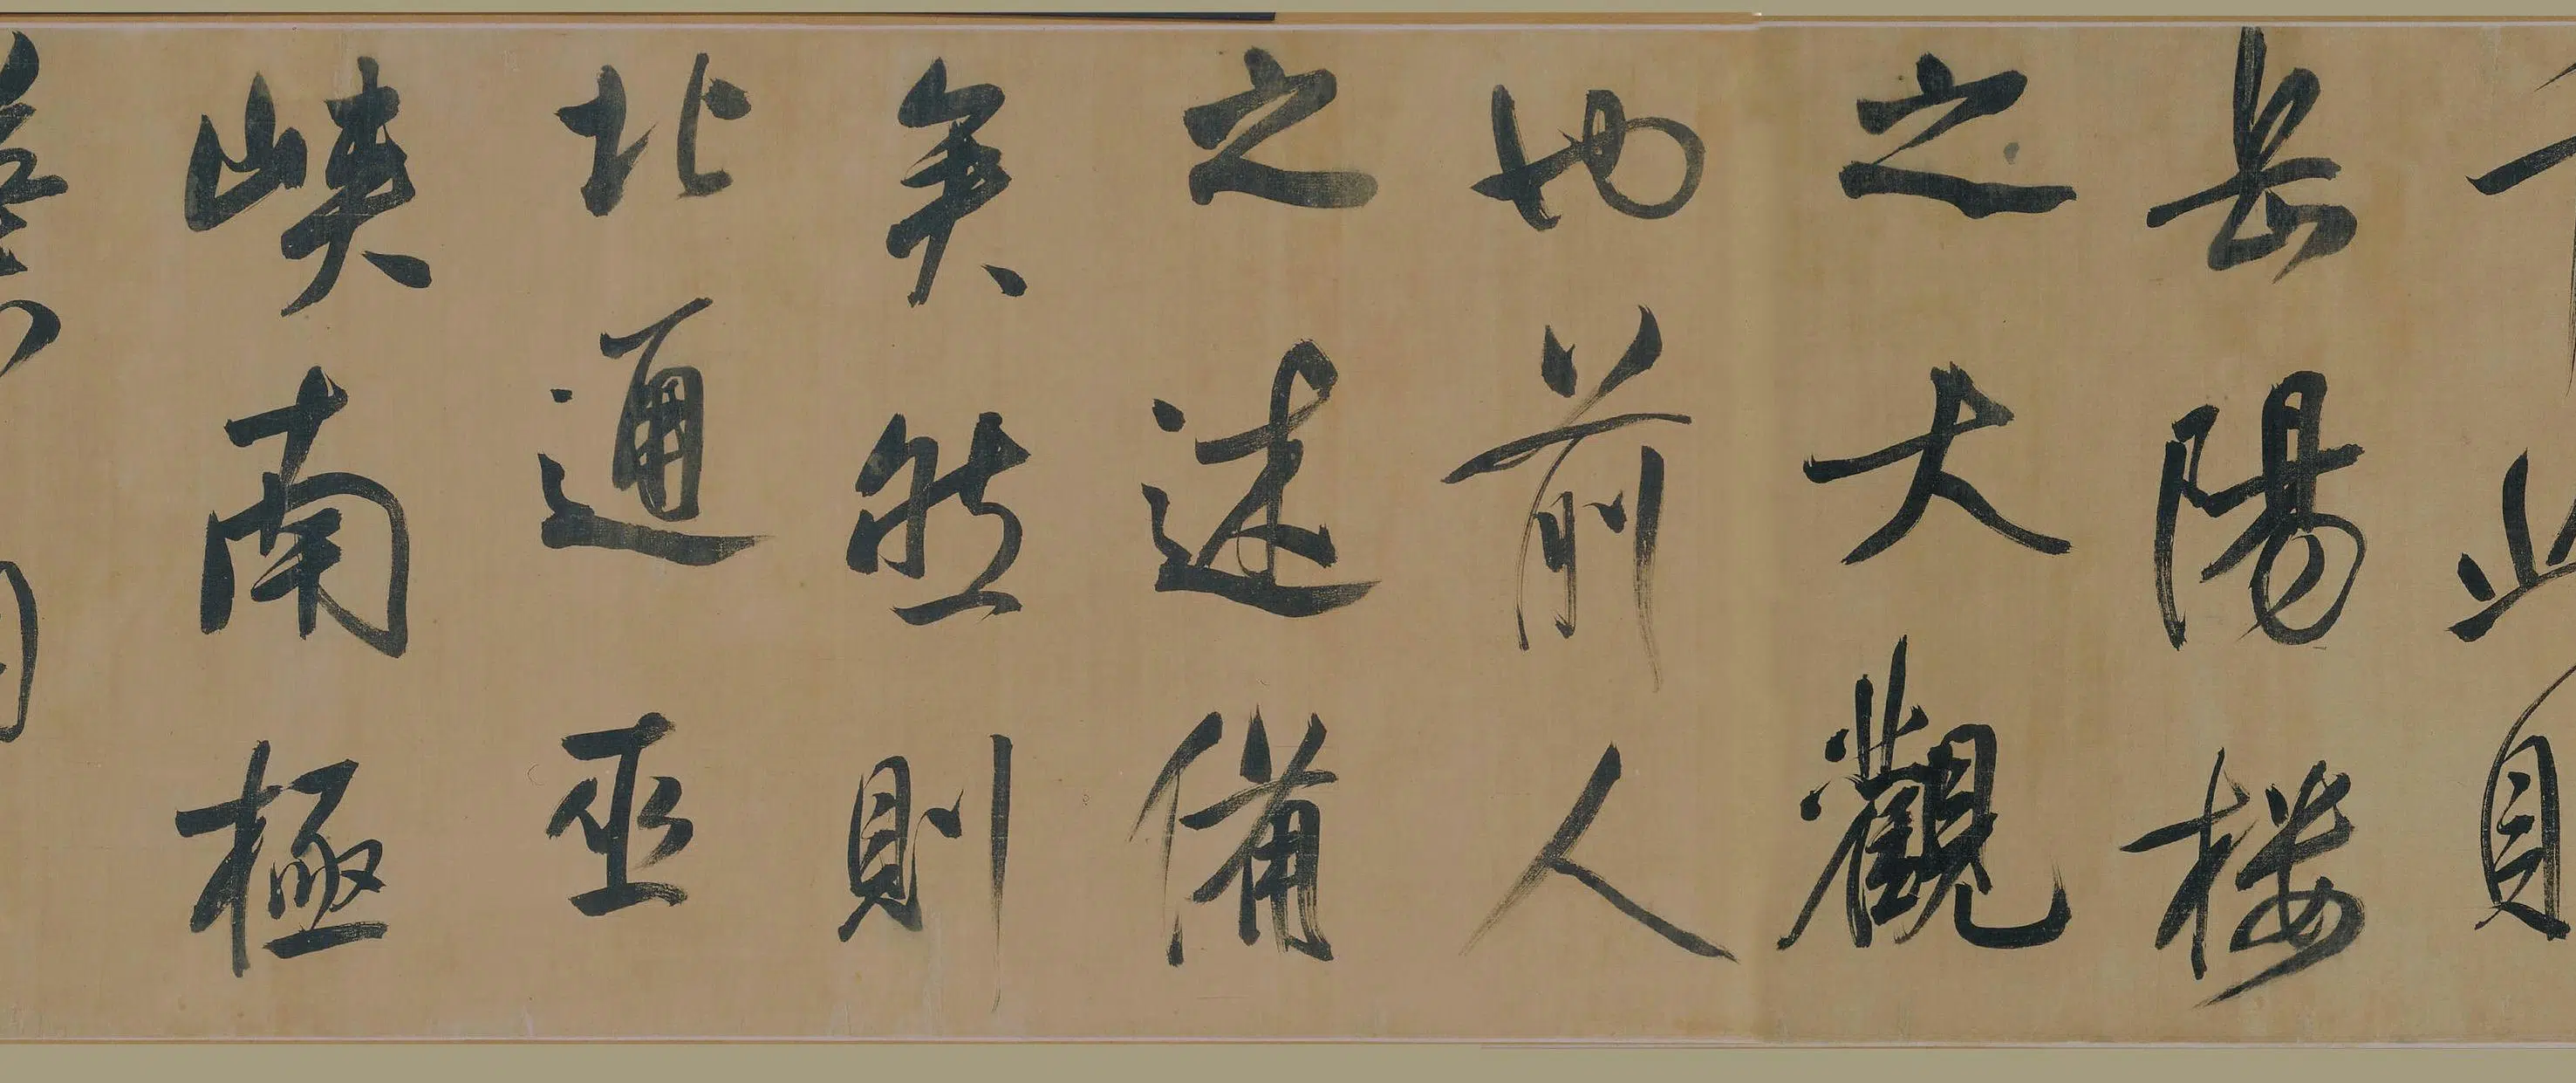 岳陽樓
之大觀
也前人
之述備
矣然則
北通巫
峽南極